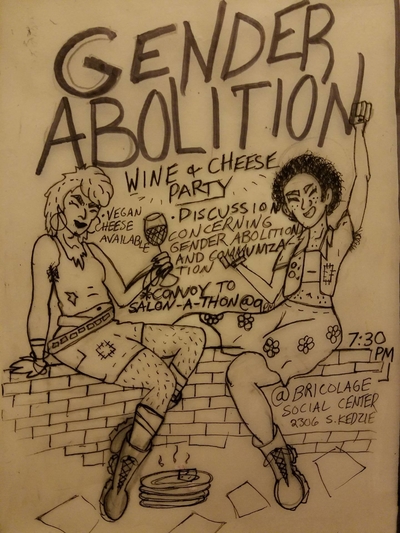 GENDER
ABOLITION
WINE & CHEESE
PARTY
• VEGAN
CHEESE
AVAILABLE
• DISCUSSION
CONCERNING
GENDER ABOLITION
AND COMMUNIZA-
TION
* CONVOY TO
SALON-A-THON @ 9
7:30
PM
@ BRICOLAGE
SOCIAL CENTER
2306 S. KEDZIE